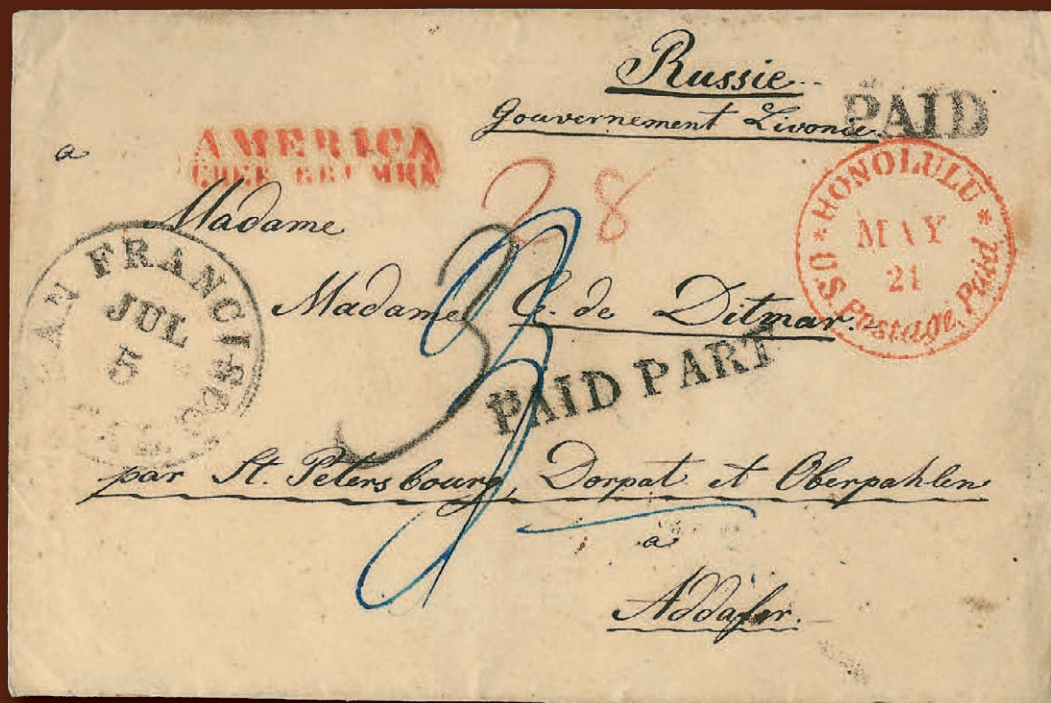 Russie
Gouvernement Livonie
PAID
AMERICA
à
HONOLULU
MAY
21
US Postage Paid
28
Madame
SAN FRANCISCO
JUL
5
3
Madame C. de Ditmar.
PAID PART
par St. Petersbourg, Dorpat et Oberpahlen
à
Addafer.